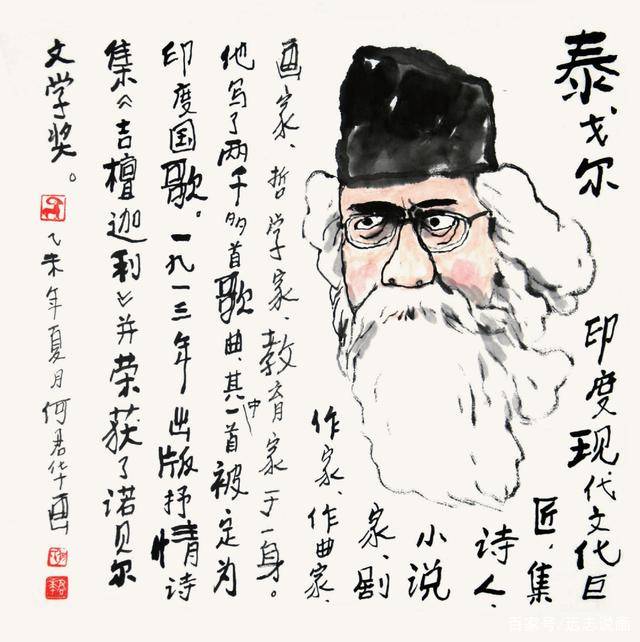 泰戈尔
印度现代文化巨
匠，集
诗人、
小说
家、剧
作家、作曲家、
画家、哲学家、教育家于一身。
他写了两千多首歌曲，其中一首被定为
印度国歌。一九一三年出版抒情诗
集《吉檀迦利》并荣获了诺贝尔
文学奖。
乙未年夏月何君华画
百家号/远志说画